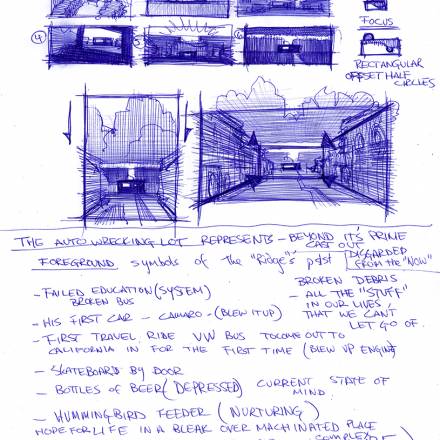 FOCUS
④
5
6
RECTANGULAR
OFFSET HALF
CIRCLES
THE AUTO WRECKING LOT REPRESENTS - BEYOND IT'S PRIME
CAST OUT
FOREGROUND symbols of the "Ridge's" past DISGARDED
from the "NOW"
- FAILED EDUCATION (SYSTEM)
BROKEN BUS
BROKEN DEBRIS
- ALL THE "STUFF"
IN OUR LIVES,
THAT WE CAN'T
LET GO OF.
- HIS FIRST CAR - CAMARO - (BLEW IT UP)
- FIRST TRAVEL RIDE VW BUS TO COME OUT TO
CALIFORNIA IN FOR THE FIRST TIME (BLEW UP ENGINE)
- SKATEBOARD BY DOOR
- BOTTLES OF BEER (DEPRESSED) CURRENT STATE OF
MIND
- HUMMINGBIRD FEEDER (NURTURING)
HOPE FOR LIFE IN A BLEAK OVER MACHINATED PLACE
COMPLEX